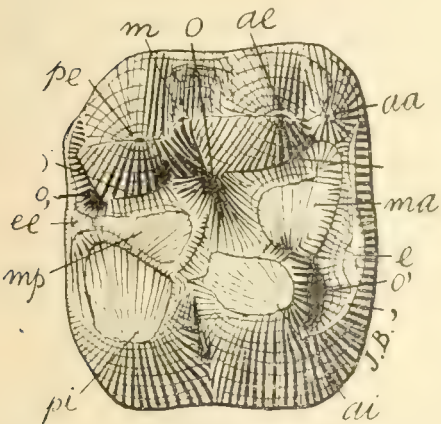 m o ae
pe aa
)
o, ma
ee
mp e
o'
,
J.B.
pi ai